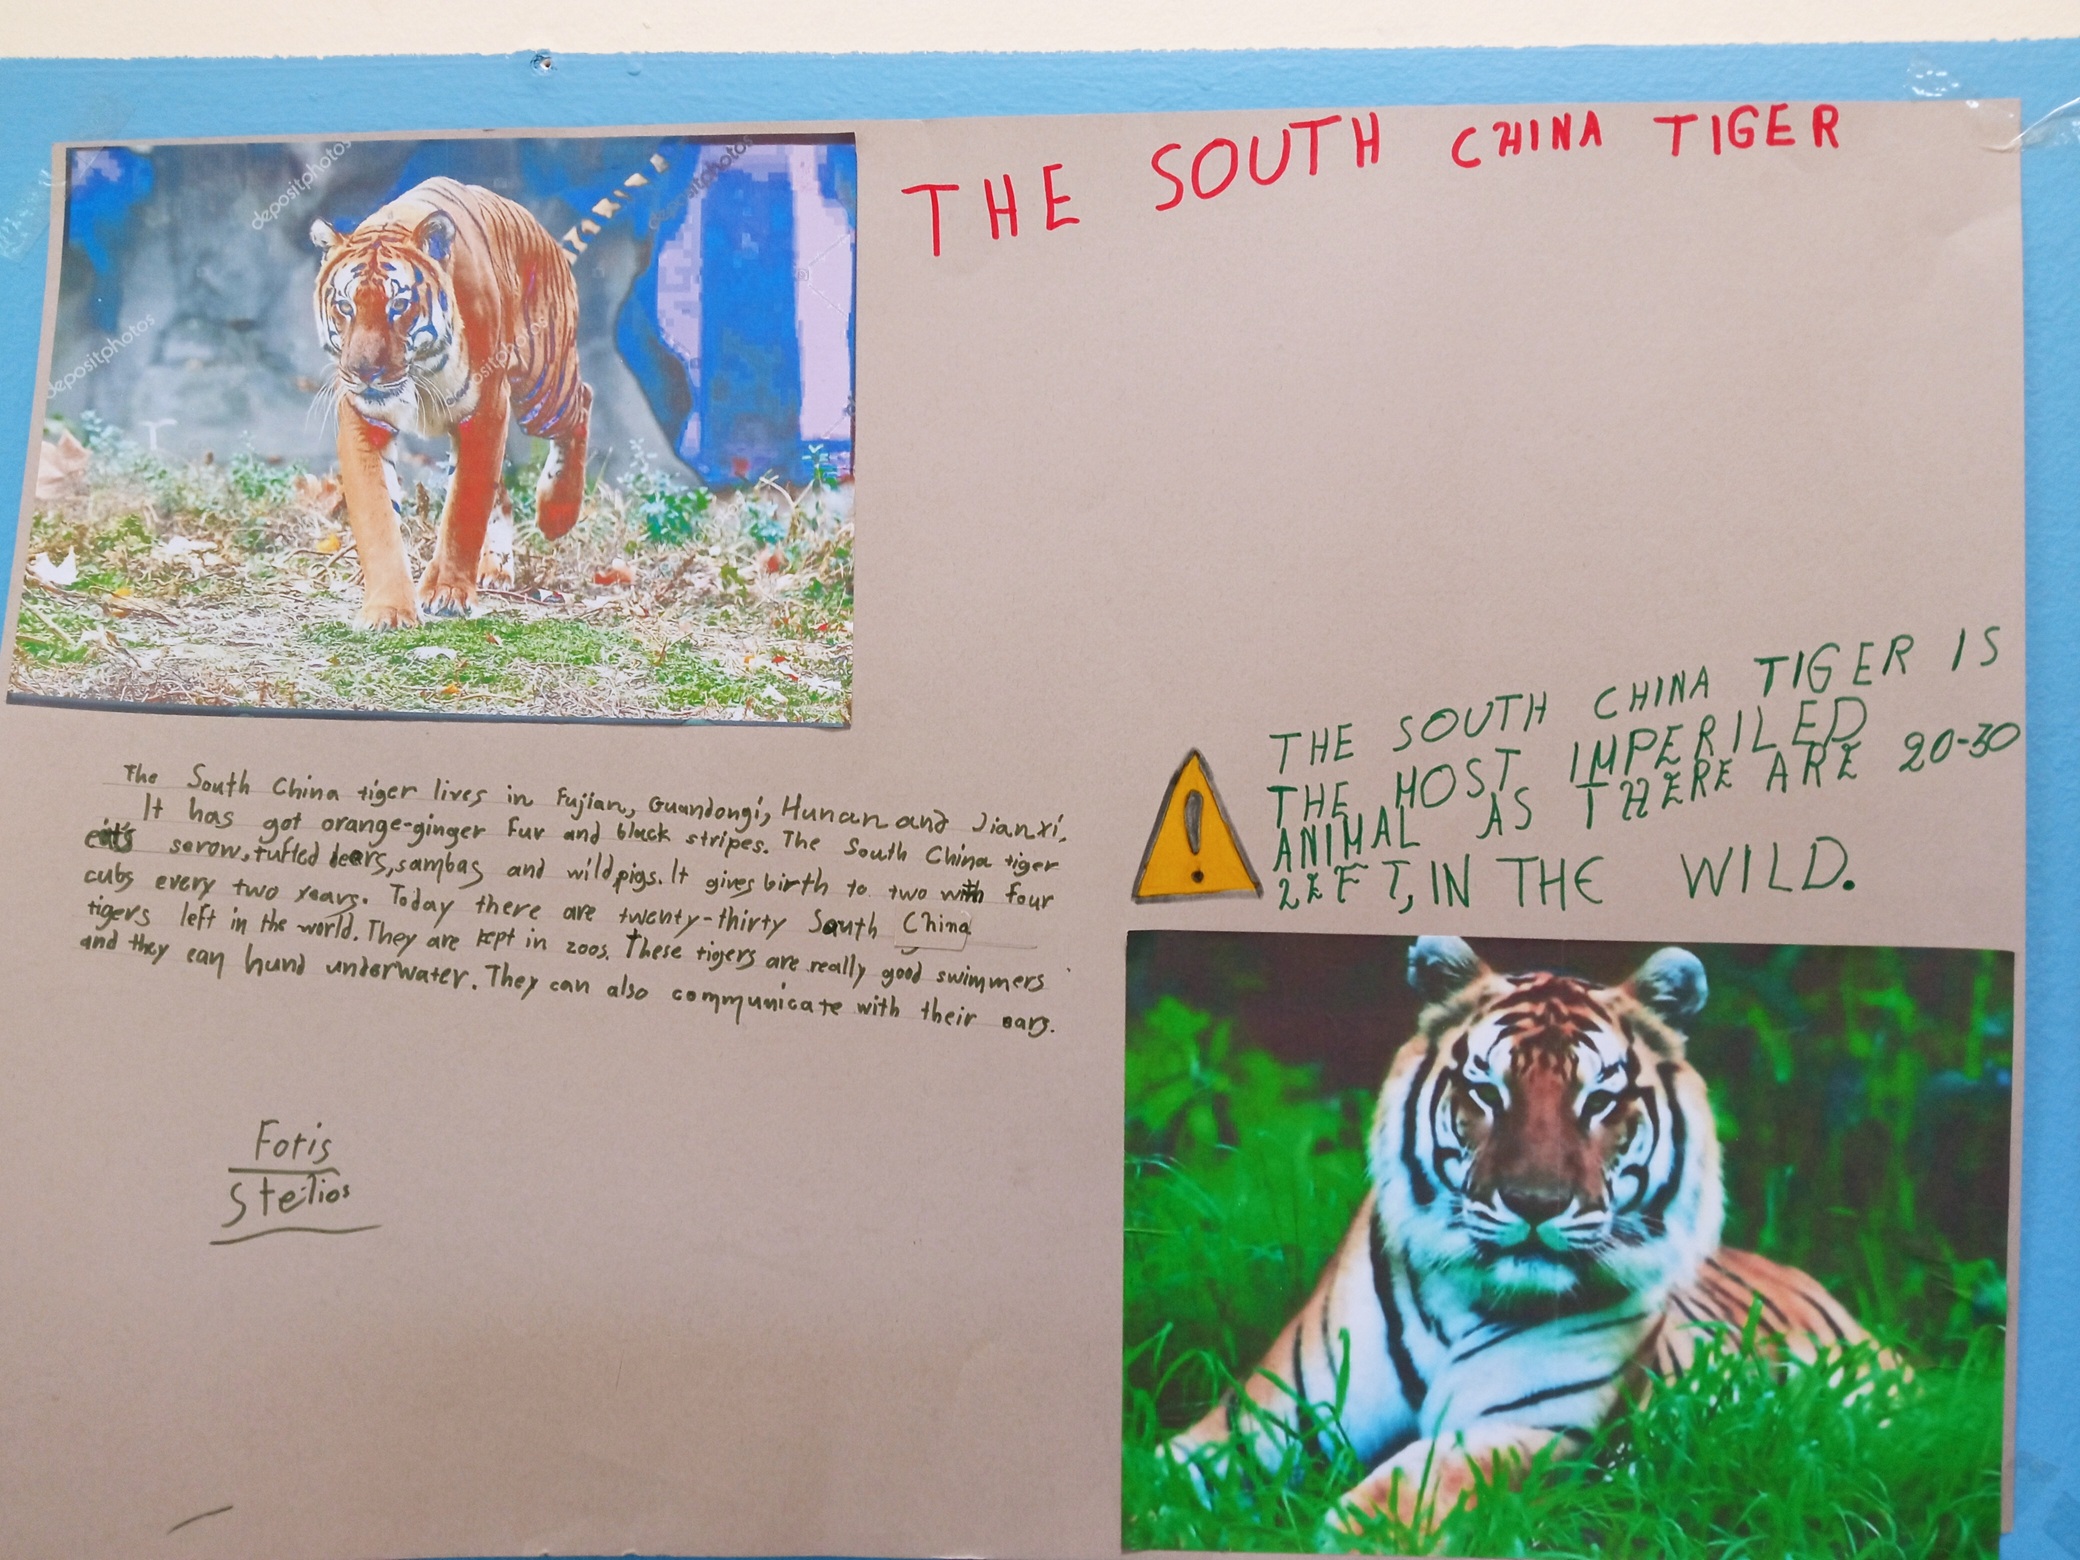 THE SOUTH CHINA TIGER
depositphotos
depositphotos
depositphotos
depositphotos
THE SOUTH CHINA TIGER IS
THE MOST IMPERILED
ANIMAL AS THERE ARE 20-30
LEFT, IN THE WILD.
The South China tiger lives in Fujian, Guandongi, Hunan and Jianxi.
It has got orange-ginger fur and black stripes. The South China tiger
eats serow, tufted dears, sambas and wild pigs. It gives birth to two with four
cubs every two years. Today there are twenty-thirty South China
tigers left in the world. They are kept in zoos. These tigers are really good swimmers
and they can hund underwater. They can also communicate with their ears.
Fotis
Stelios